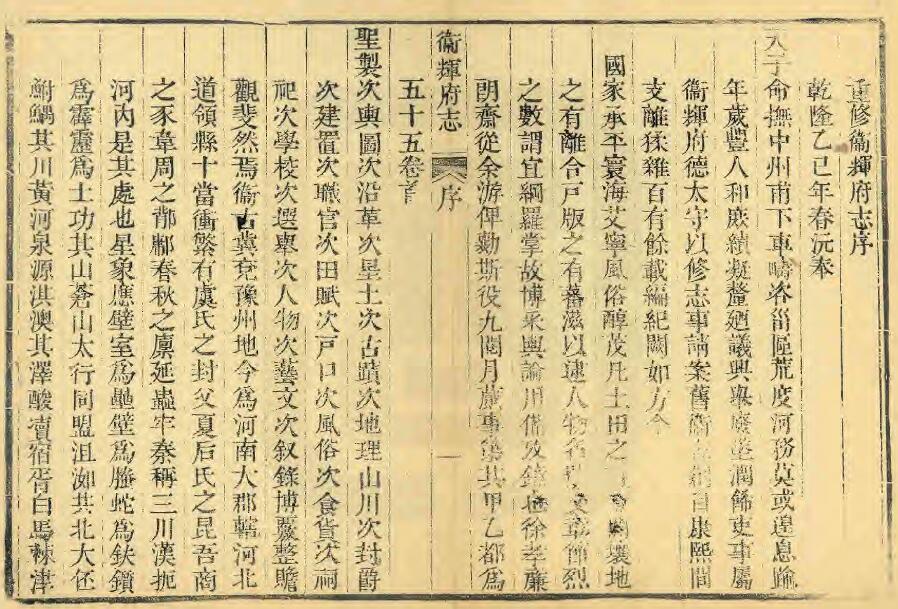 重修衞輝府志序
乾隆乙巳年春沅奉
天子命撫中州甫下車疇咨甾區荒度河務莫或遑息踰
年歲豐人和庶績凝釐廼議興舉廢墜潤飾吏事屬
衞輝府德太守以修志事請案舊衞志創自康熙間
支離猱雜百有餘載編紀闕如方今
國家承平寰海艾寧風俗醇茂凡土田之壤地
之有離合戸版之有蕃滋以逮人物名文章偉烈
之數謂宜綱羅掌故博采輿論用備攷鏡也徐孝廉
朗齋從余游俾勷斯役九閲月蕆事第其甲乙都爲
衞輝府志 序 一
五十五卷首
聖製次輿圖次沿革次星土次古蹟次地理山川次封爵
次建置次職官次田賦次戸口次風俗次食貨次祠
祀次學校次選舉次人物次藝文次叙錄博覈整贍
觀斐然焉衞古冀兗豫州地今爲河南大郡轄河北
道領縣十當衝繁有虞氏之封父夏后氏之昆吾商
之豕韋周之鄁鄘春秋之廩延蟲牢秦稱三川漢扼
河內是其處也星象應壁室爲壘壁爲螣蛇爲鈇鑕
爲霹靂爲土功其山蒼山太行同盟沮洳共北大伾
鮒鰅其川黃河泉源淇澳其澤酸棗宿胥白馬棘津